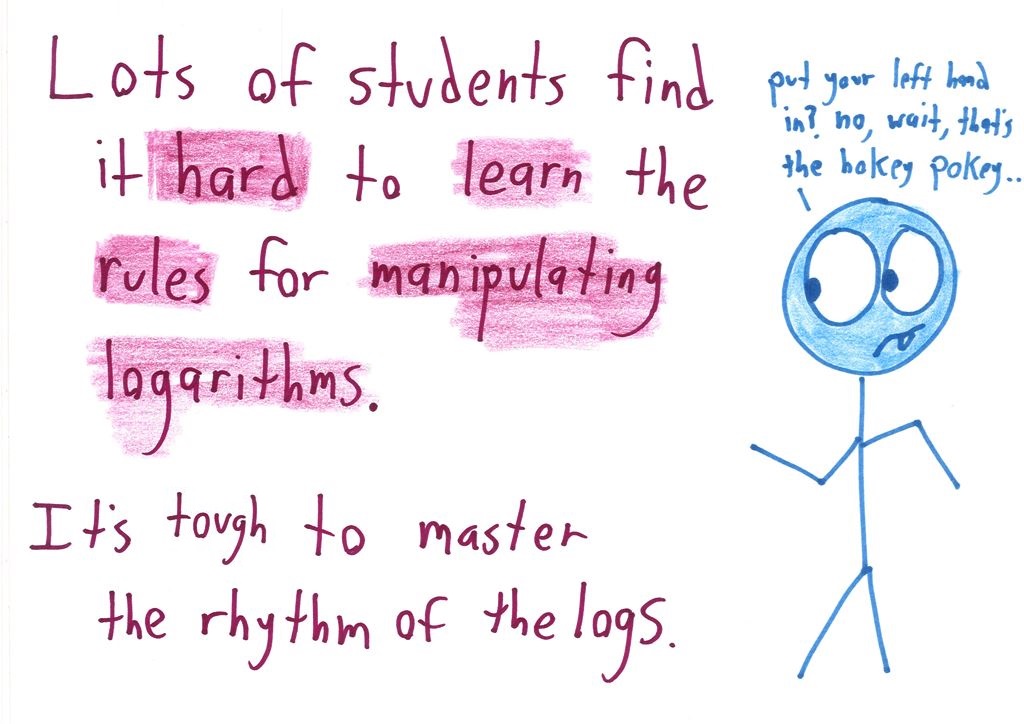 Lots of students find
it hard to learn the
rules for manipulating
logarithms.
It's tough to master
the rhythm of the logs.
put your left hand
in? no, wait, that's
the hokey pokey..